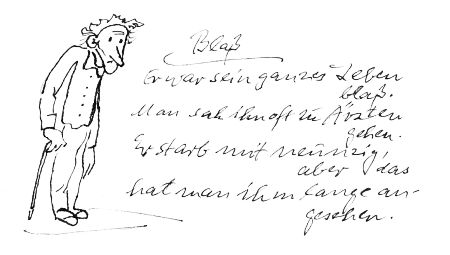 Blaß
Er war sein ganzes Leben
blaß.
Man sah ihn oft zu Ärzten
gehen.
Er starb mit neunzig,
aber das
hat man ihm lange an-
gesehen.